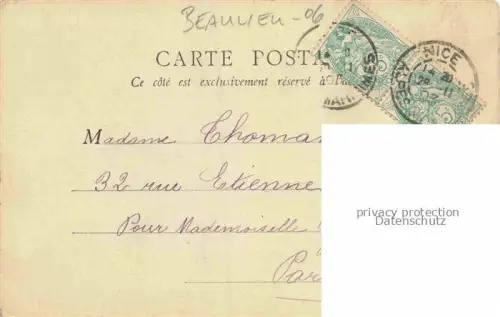 BEAULIEU - 06
CARTE POSTA
Ce côté est exclusivement réservé à l'a
NICE
MARITIMES
Madame Thoma
32 rue Etienne
Pour Mademoiselle
Par
privacy protection
Datenschutz